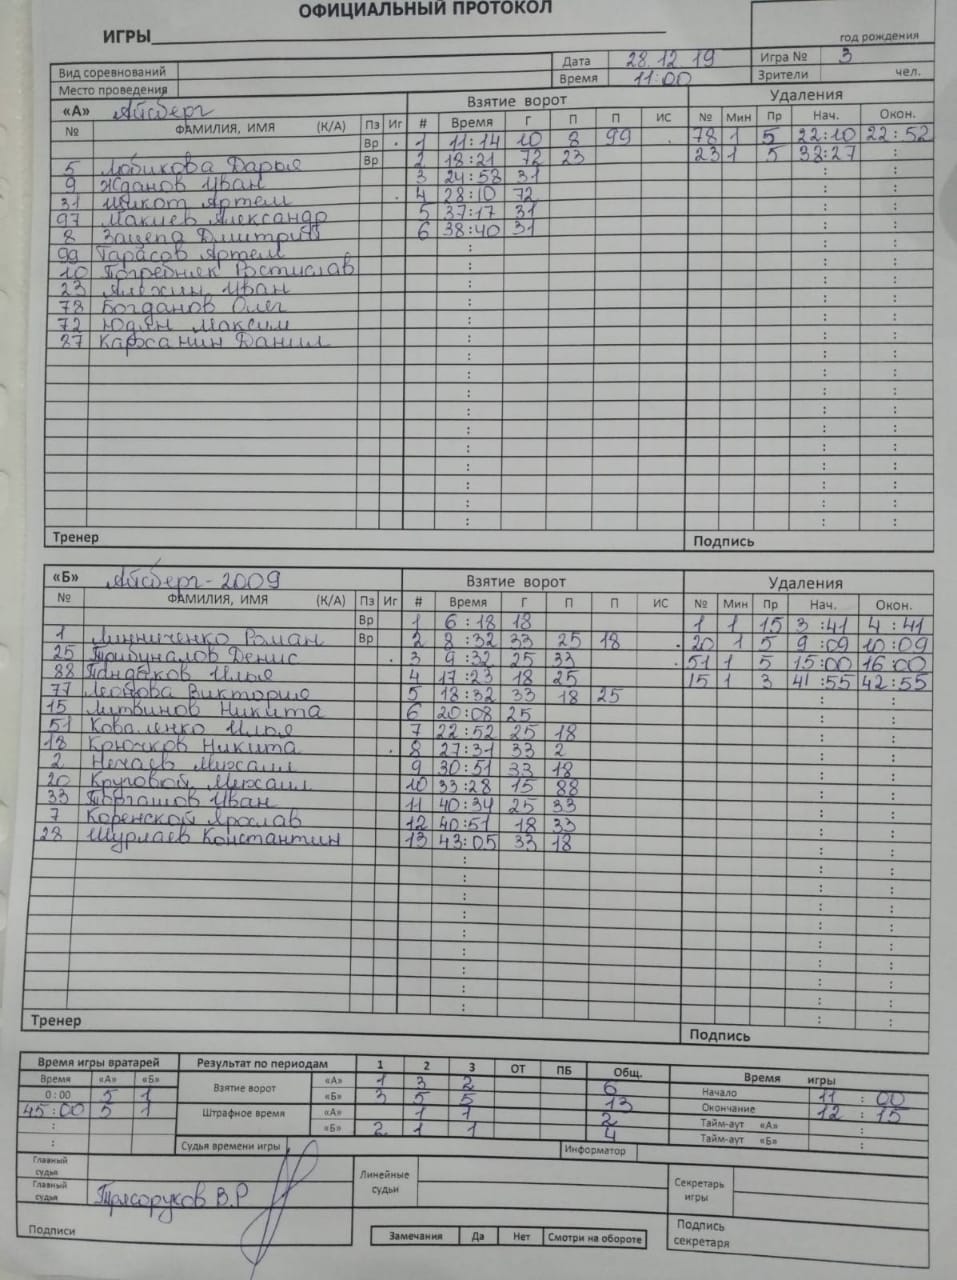 ОФИЦИАЛЬНЫЙ ПРОТОКОЛ
ИГРЫ
год рождения
Вид соревнований Дата 28.12.19 Игра № 3
Место проведения Время 11:00 Зрители чел.
«А» Айсберг Взятие ворот Удаления
№ ФАМИЛИЯ, ИМЯ (К/А) Пз Иг # Время Г П П ИС № Мин Пр Нач. Окон.
Вр 1 11:14 10 8 99 78 1 5 22:10 22:52
5 Лобикова Дарья Вр 2 18:21 72 23 23 1 5 32:27 :
9 Жданов Иван 3 24:58 31
31 Артем 4 28:10 72
97 Макиев Александр 5 37:17 31
8 Зацепа Дмитрий 6 38:40 31
99 Тарасов Артем
10 Погребняк Ростислав
23 Алехин Иван
78 Богданов Олег
72 Юдин Максим
87 Карсанин Данил
Тренер Подпись
«Б» Айсберг-2009 Взятие ворот Удаления
№ ФАМИЛИЯ, ИМЯ (К/А) Пз Иг # Время Г П П ИС № Мин Пр Нач. Окон.
Вр 1 6:18 18 1 1 15 3:41 4:41
1 Линниченко Роман Вр 2 8:32 33 25 18 20 1 5 9:09 10:09
25 Трибуналов Денис 3 9:32 25 33 51 1 5 15:00 16:00
88 Илья 4 17:23 18 25 15 1 3 41:55 42:55
77 Леонова Виктория 5 18:32 33 18 25
15 Литвинов Никита 6 20:08 25
51 Коваленко Илья 7 22:52 25 18
18 Крючков Никита 8 27:31 33 2
2 Нечаев Михаил 9 30:51 33 18
20 Круговой Михаил 10 33:28 15 88
33 Торгашов Иван 11 40:34 25 33
7 Коренской Ярослав 12 40:51 18 33
28 Шурлаев Константин 13 43:05 33 18
Тренер Подпись
Время игры вратарей Результат по периодам 1 2 3 ОТ ПБ Общ. Время игры
Время «А» «Б» Взятие ворот «А» 1 3 2 6 Начало 11:00
0:00 5 1 «Б» 3 5 5 13 Окончание 12:15
45:00 5 1 Штрафное время «А» 1 1 2 Тайм-аут «А» :
«Б» 2 1 1 4 Тайм-аут «Б» :
Судья времени игры Информатор
Главный судья Линейные судьи Секретарь игры
Главный судья Трясоруков В.Р
Подписи Замечания Да Нет Смотри на обороте Подпись секретаря